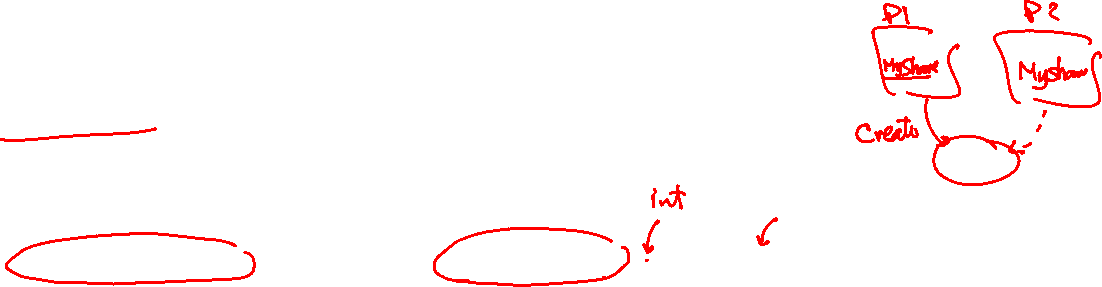 P1 P2
MyShare MyShare
Create
int